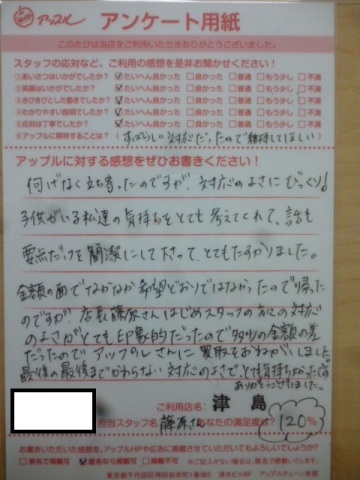 アップル アンケート用紙
このたびは当店をご利用いただきありがとうございました。
スタッフの応対など、ご利用の感想を是非お聞かせください！
1.あいさつはいかがでしたか？ たいへん良かった 良かった 普通 もう少し 不満
2.笑顔はいかがでしたか？ たいへん良かった 良かった 普通 もう少し 不満
3.きびきびとした動きでしたか？ たいへん良かった 良かった 普通 もう少し 不満
4.わかりやすい説明でしたか？ たいへん良かった 良かった 普通 もう少し 不満
5.応対は丁寧でしたか？ たいへん良かった 良かった 普通 もう少し 不満
6.アップルに期待することは？ (すばらしい対応だったので維持してほしい)
アップルに対する感想をぜひお書きください！
何げなく立ち寄ったのですが、対応のよさにびっくり！
子供がいる私達の気持ちをとても考えてくれて、話も
要点だけを簡潔にして下さって、とてもたすかりました。
金額の面でなかなか希望どおりではなかったので帰った
のですが 店長藤原さんはじめスタッフの方々の対応
のよさがとても印象的だったので多少の金額の差
だったので アップルさんに買取をおねがいしました。
最後の最後までかわらない対応のよさで、とても気持ちよかったです。
ありがとうございました。
ご利用店名： 津島
担当スタッフ名 藤原さん あなたの満足度は？ 120%
お書きいただいた感想を、アップルHPや広告に掲載させていただいてもよろしいでしょうか？
実名で掲載可 匿名なら掲載可 掲載不可 ※ご記入がない場合は匿名で掲載いたします。
東京都千代田区神田佐木町1番地5 清水ビル8F アップルチェーン本部